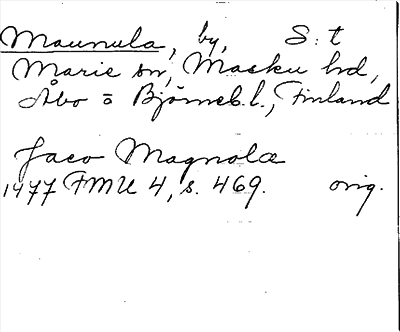 Maunula, by, S:t
Marie sn, Masku hd,
Åbo o Björneb. l., Finland
Jaco Magnola
1477 FMU 4, s. 469. orig.